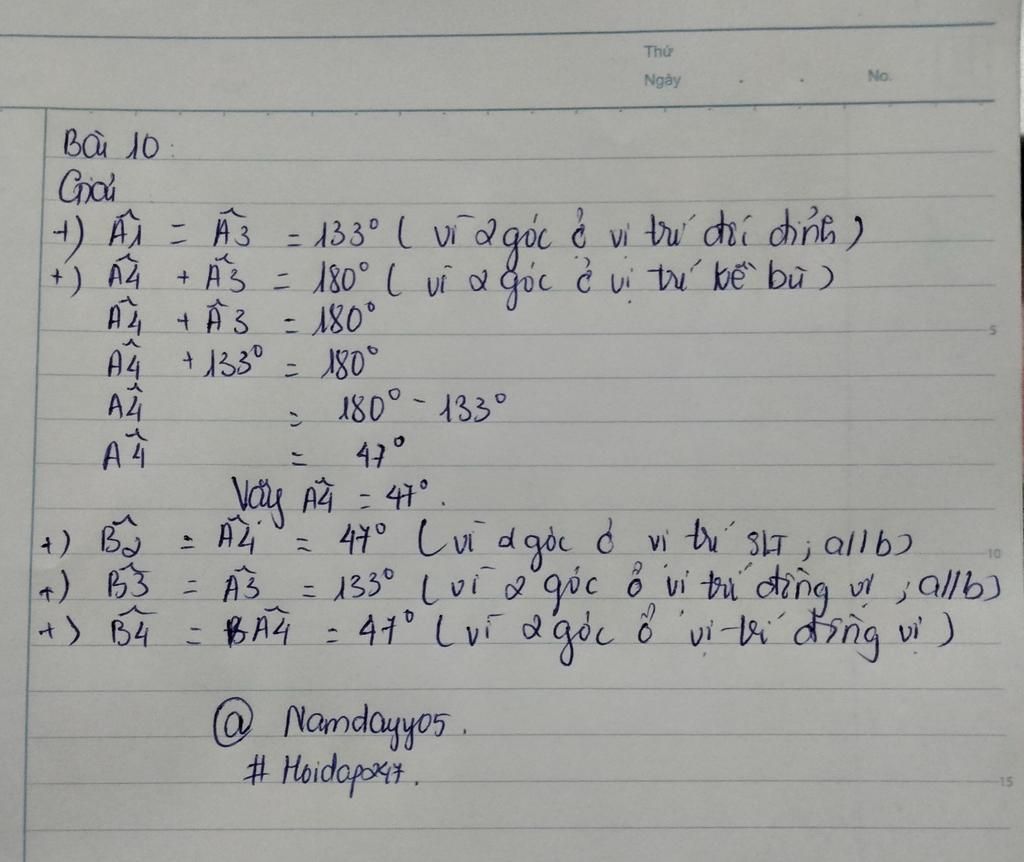 Thứ
Ngày . . No.
Bài 10:
Giải
+) Â1 = Â3 = 133° ( vì 2 góc ở vị trí đối đỉnh )
+) Â4 + Â3 = 180° ( vì 2 góc ở vị trí kề bù )
Â4 + Â3 = 180°
5
Â4 + 133° = 180°
Â4 = 180° - 133°
Â4 = 47°
Vậy Â4 = 47°.
+) B̂2 = Â4 = 47° ( vì 2 góc ở vị trí SLT ; a//b )
10
+) B̂3 = Â3 = 133° ( vì 2 góc ở vị trí đồng vị ; a//b )
+) B̂4 = Â4 = 47° ( vì 2 góc ở vị trí đồng vị )
@ Namdayy05.
# Hoidap247.
15